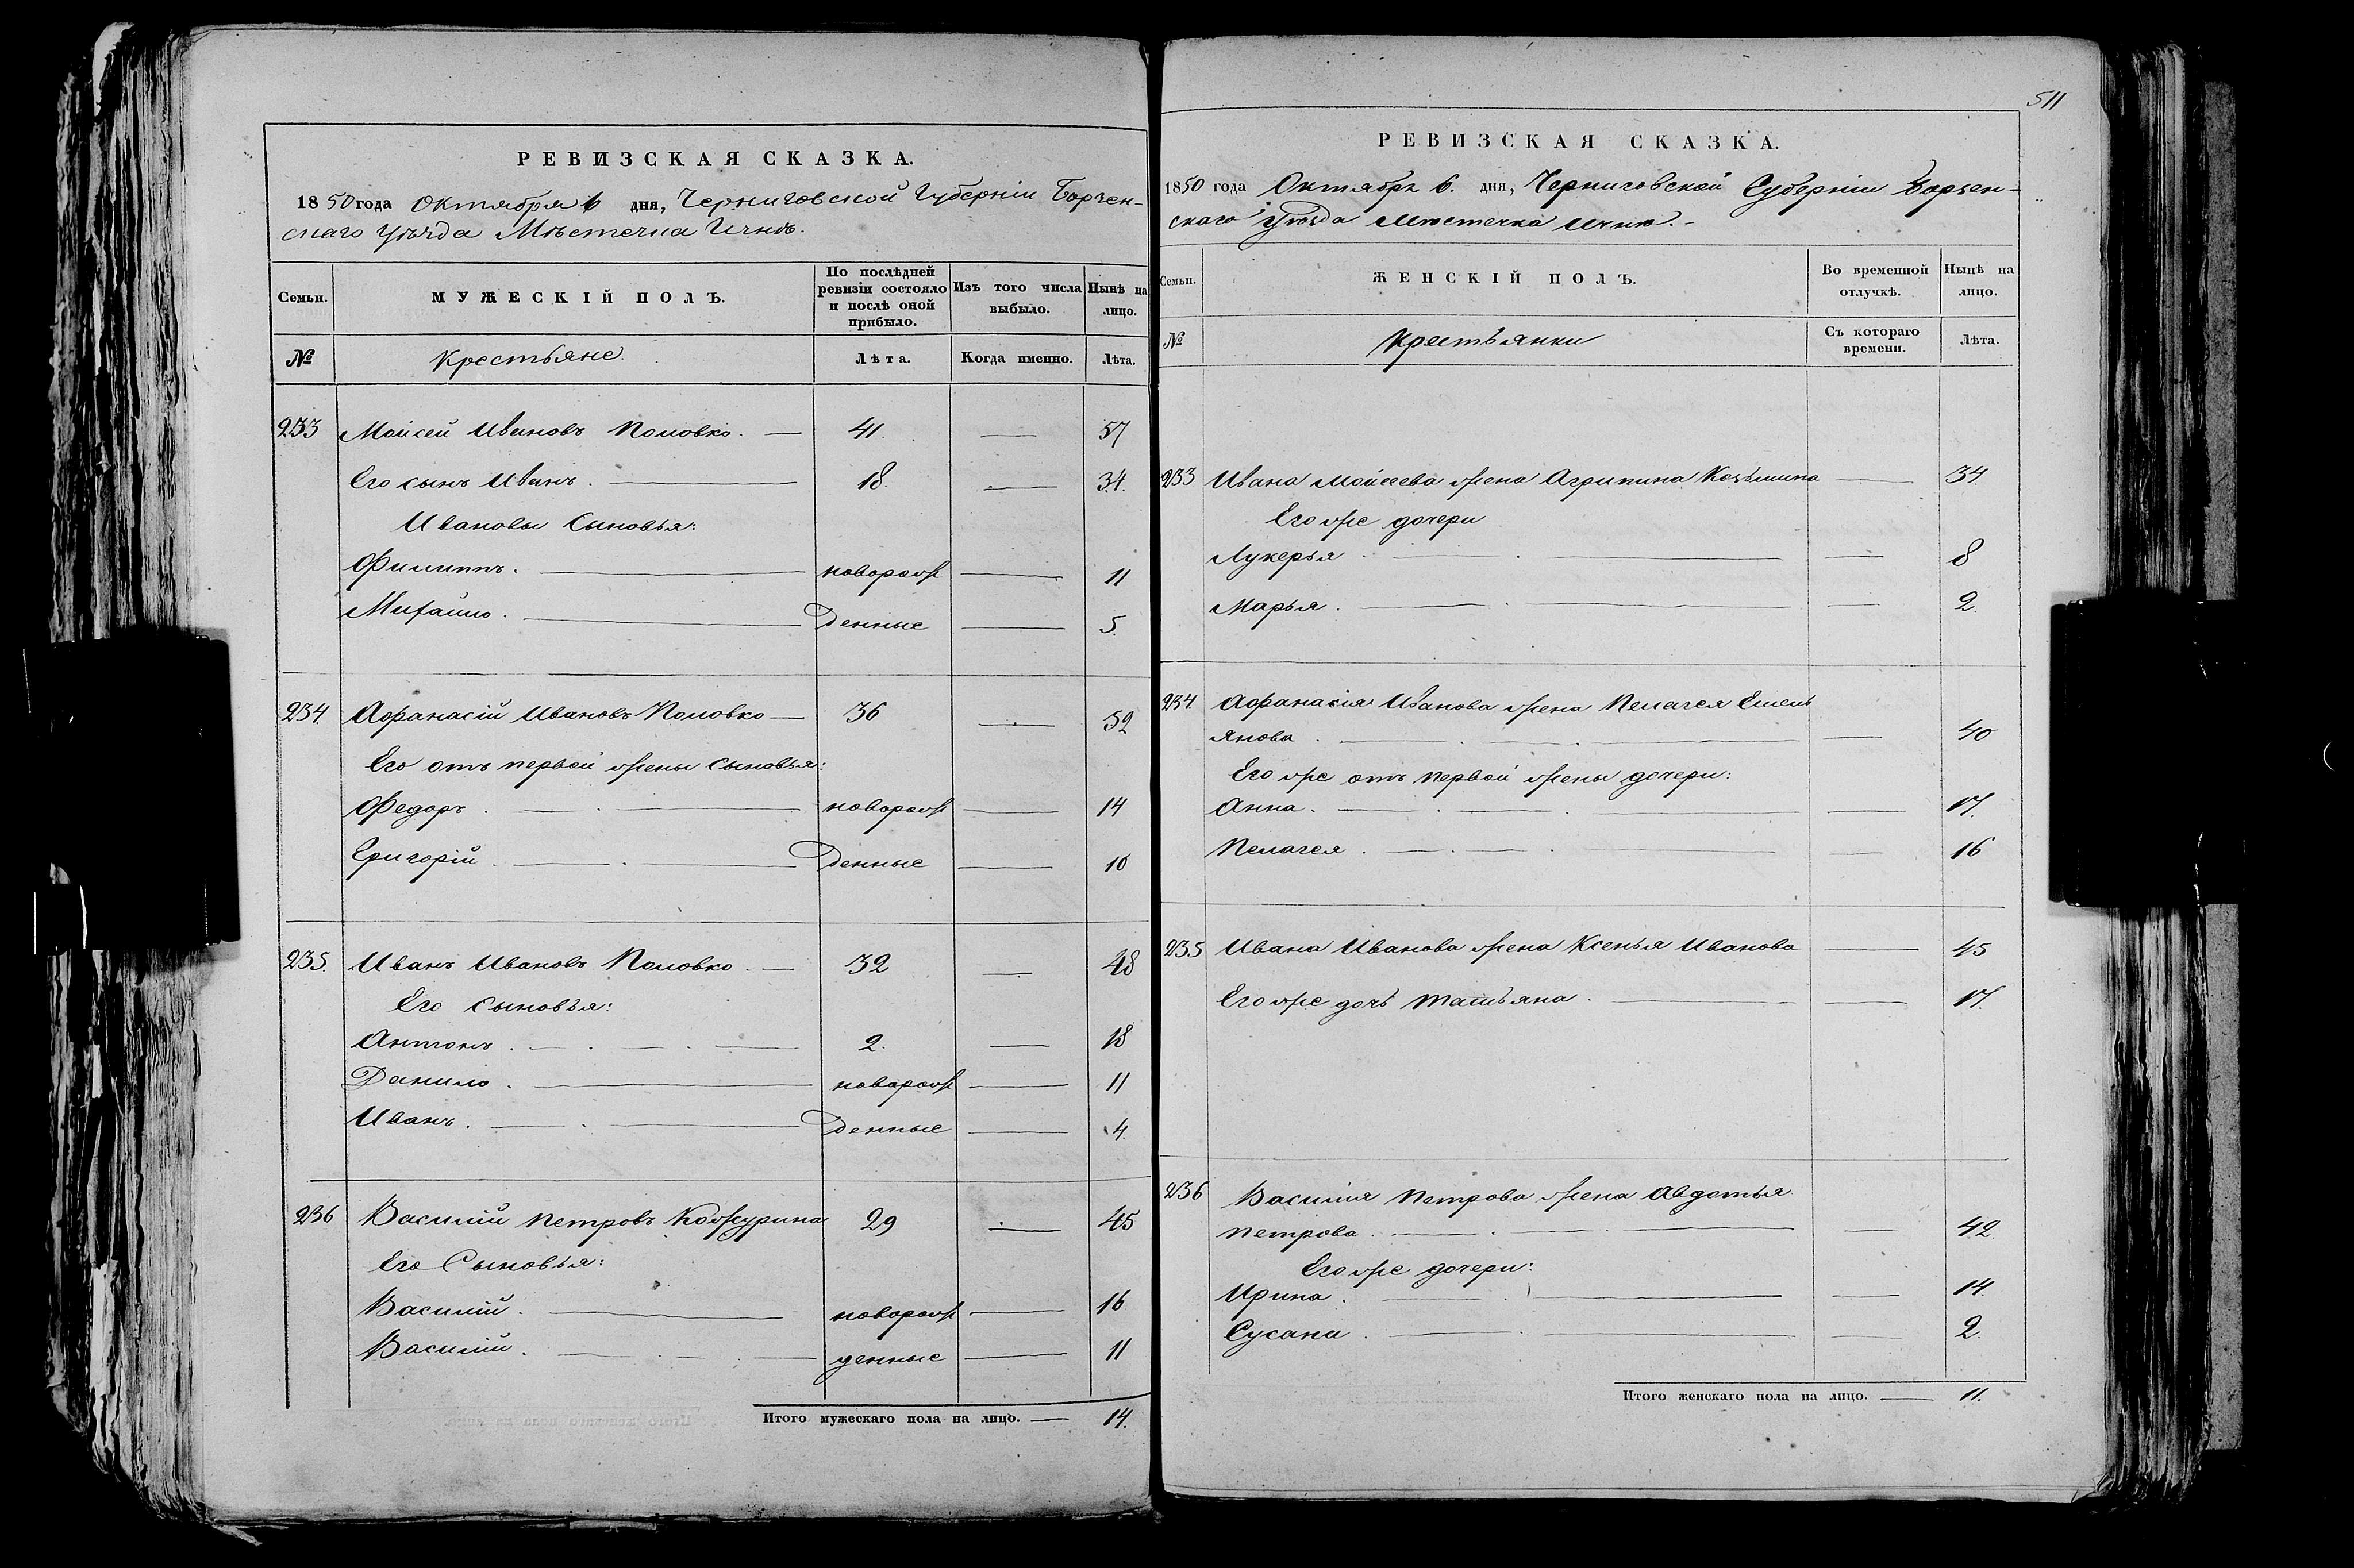 РЕВИЗСКАЯ СКАЗКА.
1850 года Октября 6 дня, Черниговской Губерніи Борзен-
скаго Уѣзда Мѣстечка Ичнѣ.
Семьи.
МУЖЕСКІЙ ПОЛЪ.
По послѣдней ревизіи состояло и послѣ оной прибыло.
Изъ того числа выбыло.
Нынѣ на лицо.
№
Крестьяне.
Лѣта.
Когда именно.
Лѣта.
233 Моисей Ивановъ Поповко. — 41. — 57
Его сынъ Иванъ. — 18. — 34.
Ивановы Сыновья:
Филиппъ. — новорож — 11
Михайло. — денные — 5.
234. Афанасій Ивановъ Поповко — 36 — 52
Его отъ первой жены сыновья:
Федоръ. — новорож — 14
Григорій. — денные — 10
235. Иванъ Ивановъ Поповко. — 32 — 48
Его сыновья:
Антонъ. — 2. — 18
Данило. — новорож — 11
Иванъ. — денные — 4.
236 Василій Петровъ Кожурина 29 — 45
Его Сыновья:
Василій. — новорож — 16
Василій. — денные — 11
Итого мужескаго пола на лицо. — 14.
511
РЕВИЗСКАЯ СКАЗКА.
1850 года Октября 6. дня, Черниговской Губерніи Борзен-
скаго Уѣзда Мѣстечка Ичнѣ.-
Семьи.
ЖЕНСКІЙ ПОЛЪ.
Во временной отлучкѣ.
Нынѣ на лицо.
№
Крестьянки
Съ котораго времени.
Лѣта.
233 Ивана Моисеева жена Агрипина Козьмина — 34.
Его же дочери
Лукерья — — 8
Марья. — — 2.
234. Афанасія Иванова жена Пелагея Емель
янова. — — 40
Его же отъ первой жены дочери:
Анна. — — 17.
Пелагея. — — 16
235 Ивана Иванова жена Ксенья Иванова — 45
Его же дочь Татьяна. — — 17.
236 Василія Петрова жена Авдотья
Петрова. — — 42.
Его же дочери:
Ирина. — — 14.
Сусана. — — 2.
Итого женскаго пола на лицо. — 11.